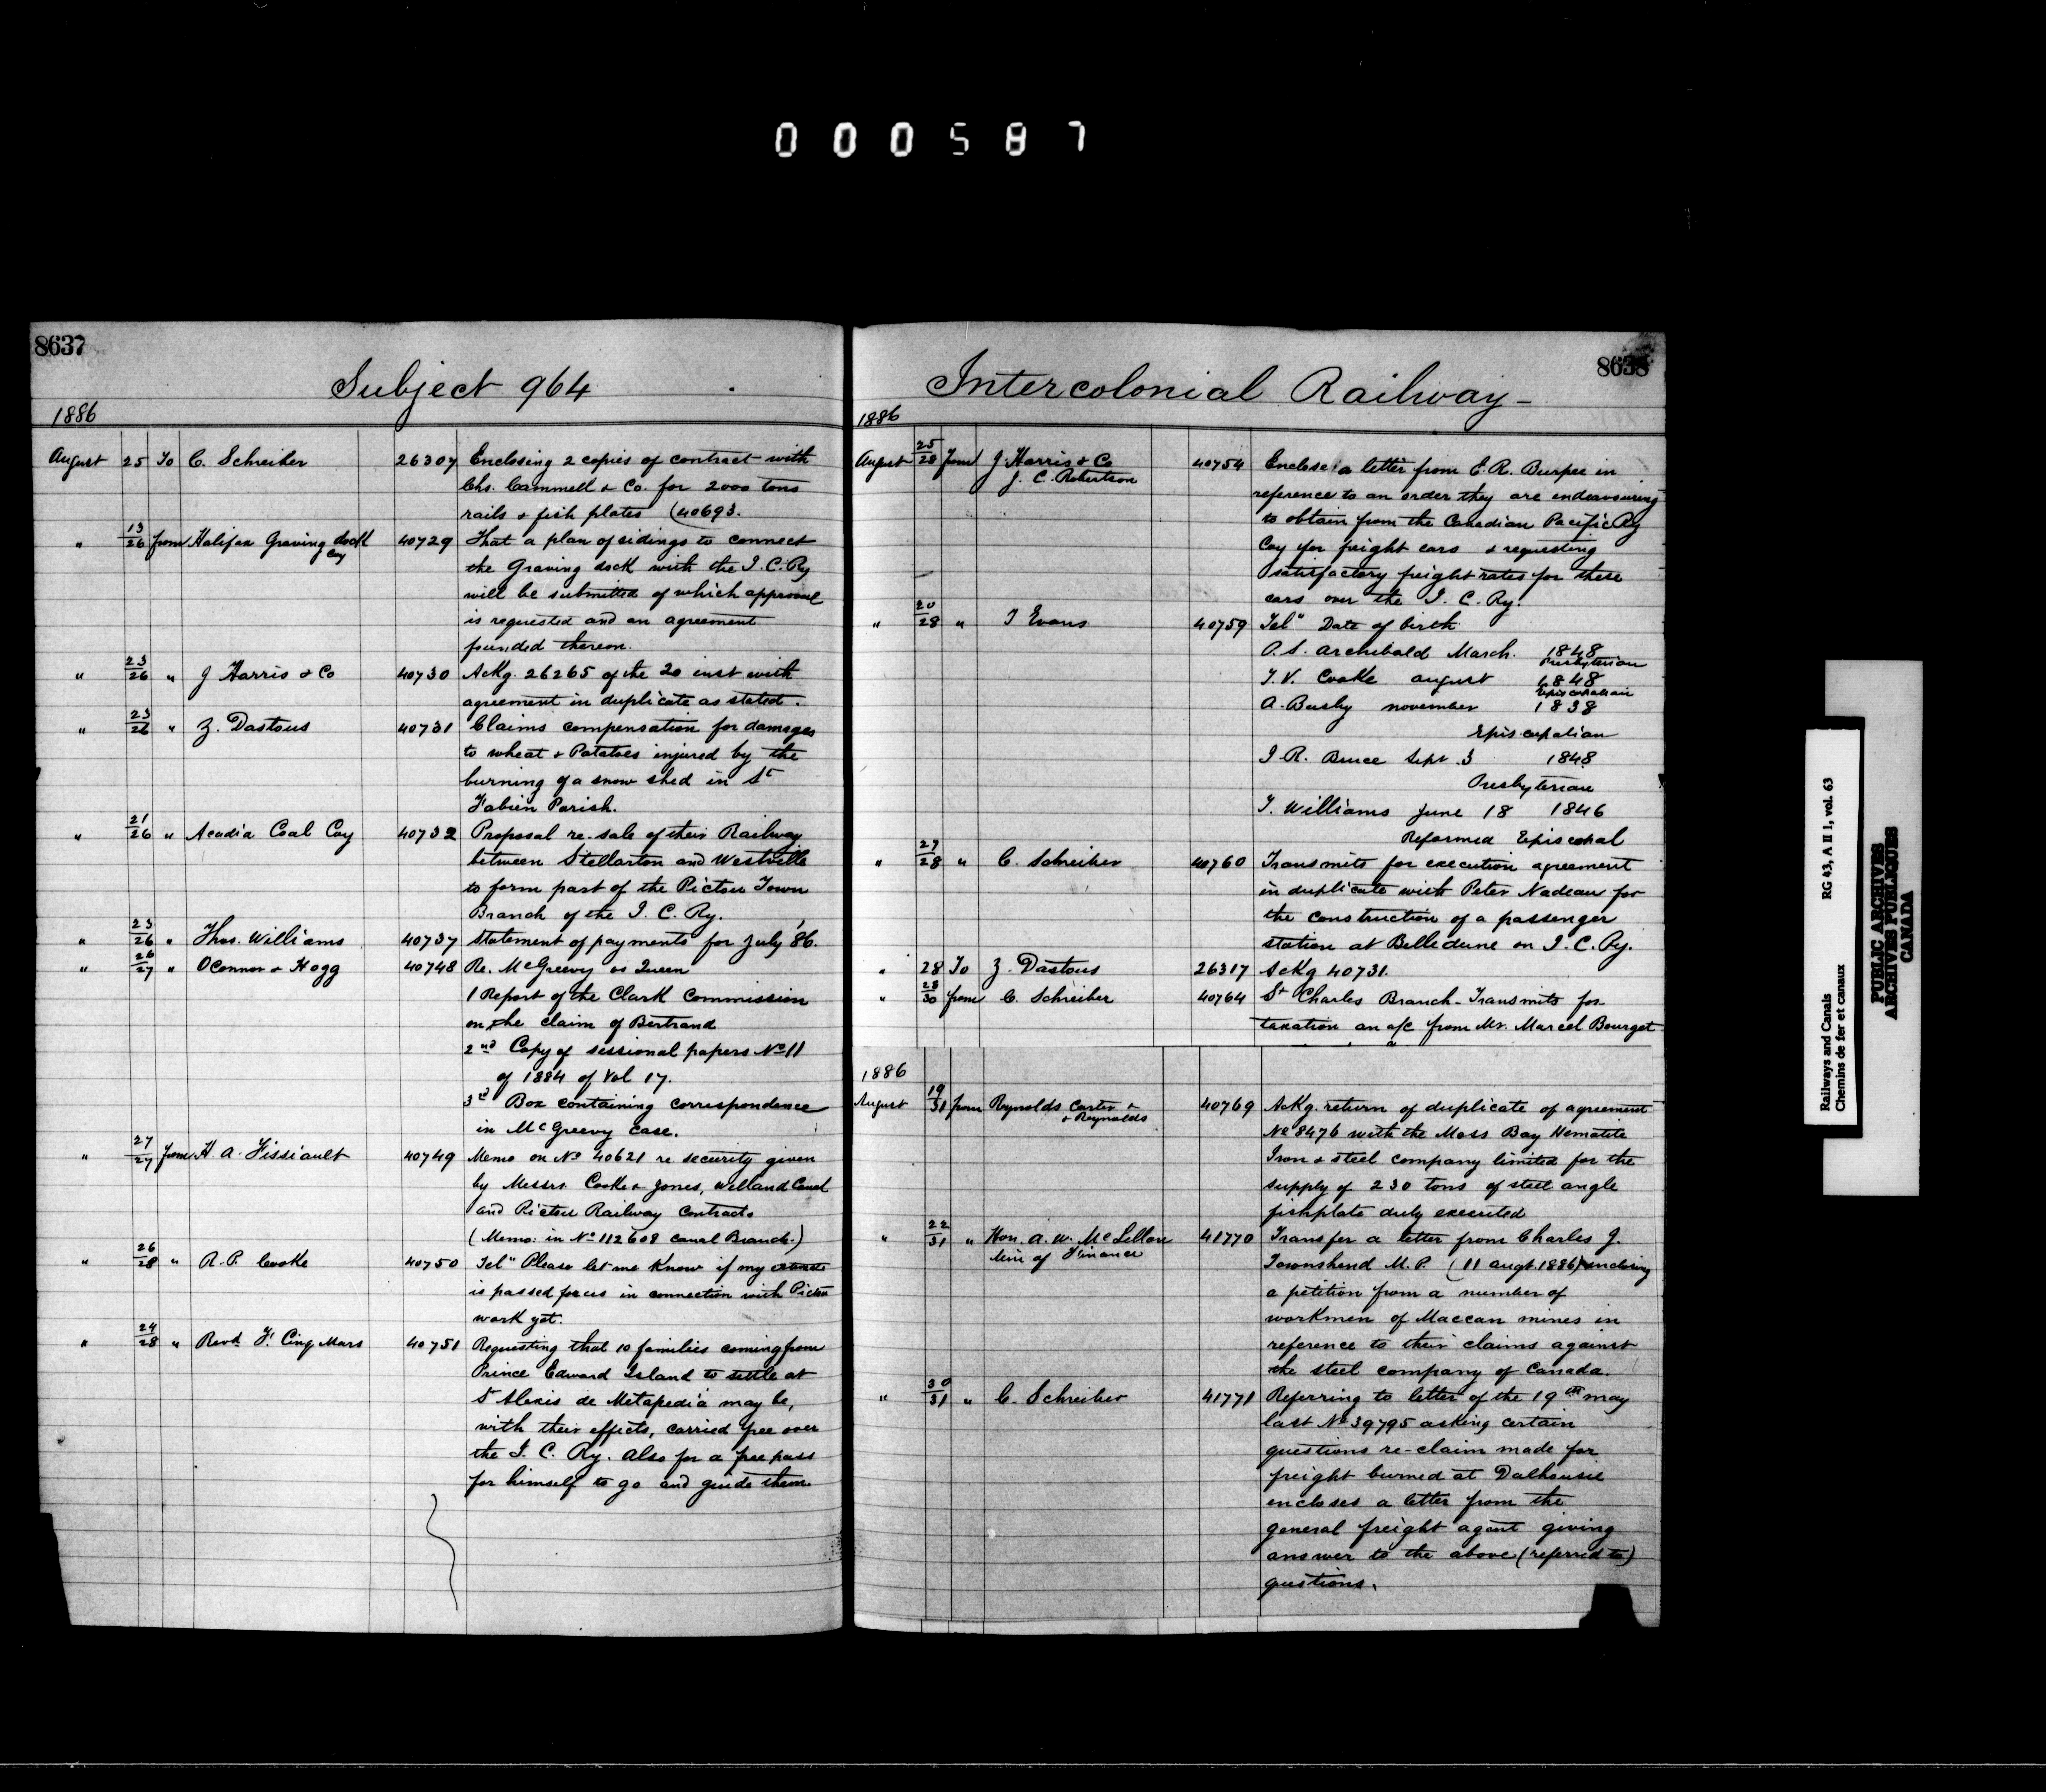 000587
8637
Subject 964
1886
August 25 To C. Schreiber 26307 Enclosing 2 copies of contract with
Chs. Cammell & Co. for 2000 tons
rails & fish plates (40693.
" 13/26 from Halifax Graving dock Coy 40729 That a plan of sidings to connect
the Graving dock with the I. C. Ry
will be submitted of which approval
is requested and an agreement
founded thereon.
" 23/26 " J Harris & Co 40730 Ackg. 26265 of the 20 inst with
agreement in duplicate as stated.
" 23/26 " Z. Dastous 40731 Claims compensation for damages
to wheat & Potatoes injured by the
burning of a snow shed in St
Fabien Parish.
" 21/26 " Acadia Coal Coy 40732 Proposal re-sale of their Railway
between Stellarton and Westville
to form part of the Pictou Town
Branch of the I. C. Ry.
" 23/26 " Thos. Williams 40737 Statement of payments for July '86.
" 26/27 " OConnor & Hogg 40748 Re. McGreevy vs Queen
1 Report of the Clark Commission
on the claim of Bertrand
2nd Copy of sessional papers No 11
of 1884 of Vol 17.
3rd Box containing correspondence
in McGreevy case.
" 27/27 from H. A. Fissiault 40749 Memo on No 40621 re security given
by Messrs Cooke & Jones, Welland Canal
and Pictou Railway Contracts
(Memo: in No 112608 Canal Branch.)
" 26/28 " R. P. Cooke 40750 Tel" Please let me know if my
is passed in connection with Pictou
work yet.
" 24/28 " Revd F. Cinq Mars 40751 Requesting that 10 families coming from
Prince Edward Island to settle at
St Alexis de Metapedia may be,
with their effects, carried free over
the I. C. Ry. Also for a free pass
for himself to go and guide them
8638
Intercolonial Railway-
1886
August 25/28 from J. Harris & Co 40754 Enclose a letter from E. R. Burpee in
J. C. Robertson
reference to an order they are endeavouring
to obtain from the Canadian Pacific Ry
Coy for freight cars & requesting
satisfactory freight rates for these
cars over the I. C. Ry.
" 20/28 " T Evans 40759 Tel" Date of birth
P. S. Archibald March. 1848
Presbyterian
T. V. Cooke august 1848
Episcopalian
A. Busby november 1838
Episcopalian
I R. Bruce Sept 3 1848
Presbyterian
T. Williams June 18 1846
Reformed Episcopal
" 27/28 " C. Schreiber 40760 Transmits for execution agreement
in duplicate with Peter Nadeau for
the construction of a passenger
station at Belledune on I. C. Ry.
" 28 To Z. Dastous 26317 Ackg 40731.
" 28/30 from C. Schreiber 40764 St Charles Branch- Transmits for
taxation an a/c from Mr. Marcel Bourget
1886
August 19/31 from Reynolds Carter & 40769 Ackg. return of duplicate of agreement
& Reynolds
No 8476 with the Moss Bay Hematite
Iron & steel company limited for the
supply of 230 tons of steel angle
fishplate duly executed
" 22/31 " Hon. A. W. McLellan 41770 Transfer a letter from Charles J.
Min of Finance
Townshend M. P. (11 augt. 1886) enclosing
a petition from a number of
workmen of Maccan mines in
reference to their claims against
the steel company of Canada.
" 30/31 " C. Schreiber 41771 Referring to letter of the 19th may
last No 39795 asking certain
questions re-claim made for
freight burned at Dalhousie
encloses a letter from the
general freight agent giving
answer to the above (referred to)
qustions.
Railways and Canals RG 43, A II 1, vol. 63
Chemins de fer et canaux
PUBLIC ARCHIVES
ARCHIVES PUBLIQUES
CANADA